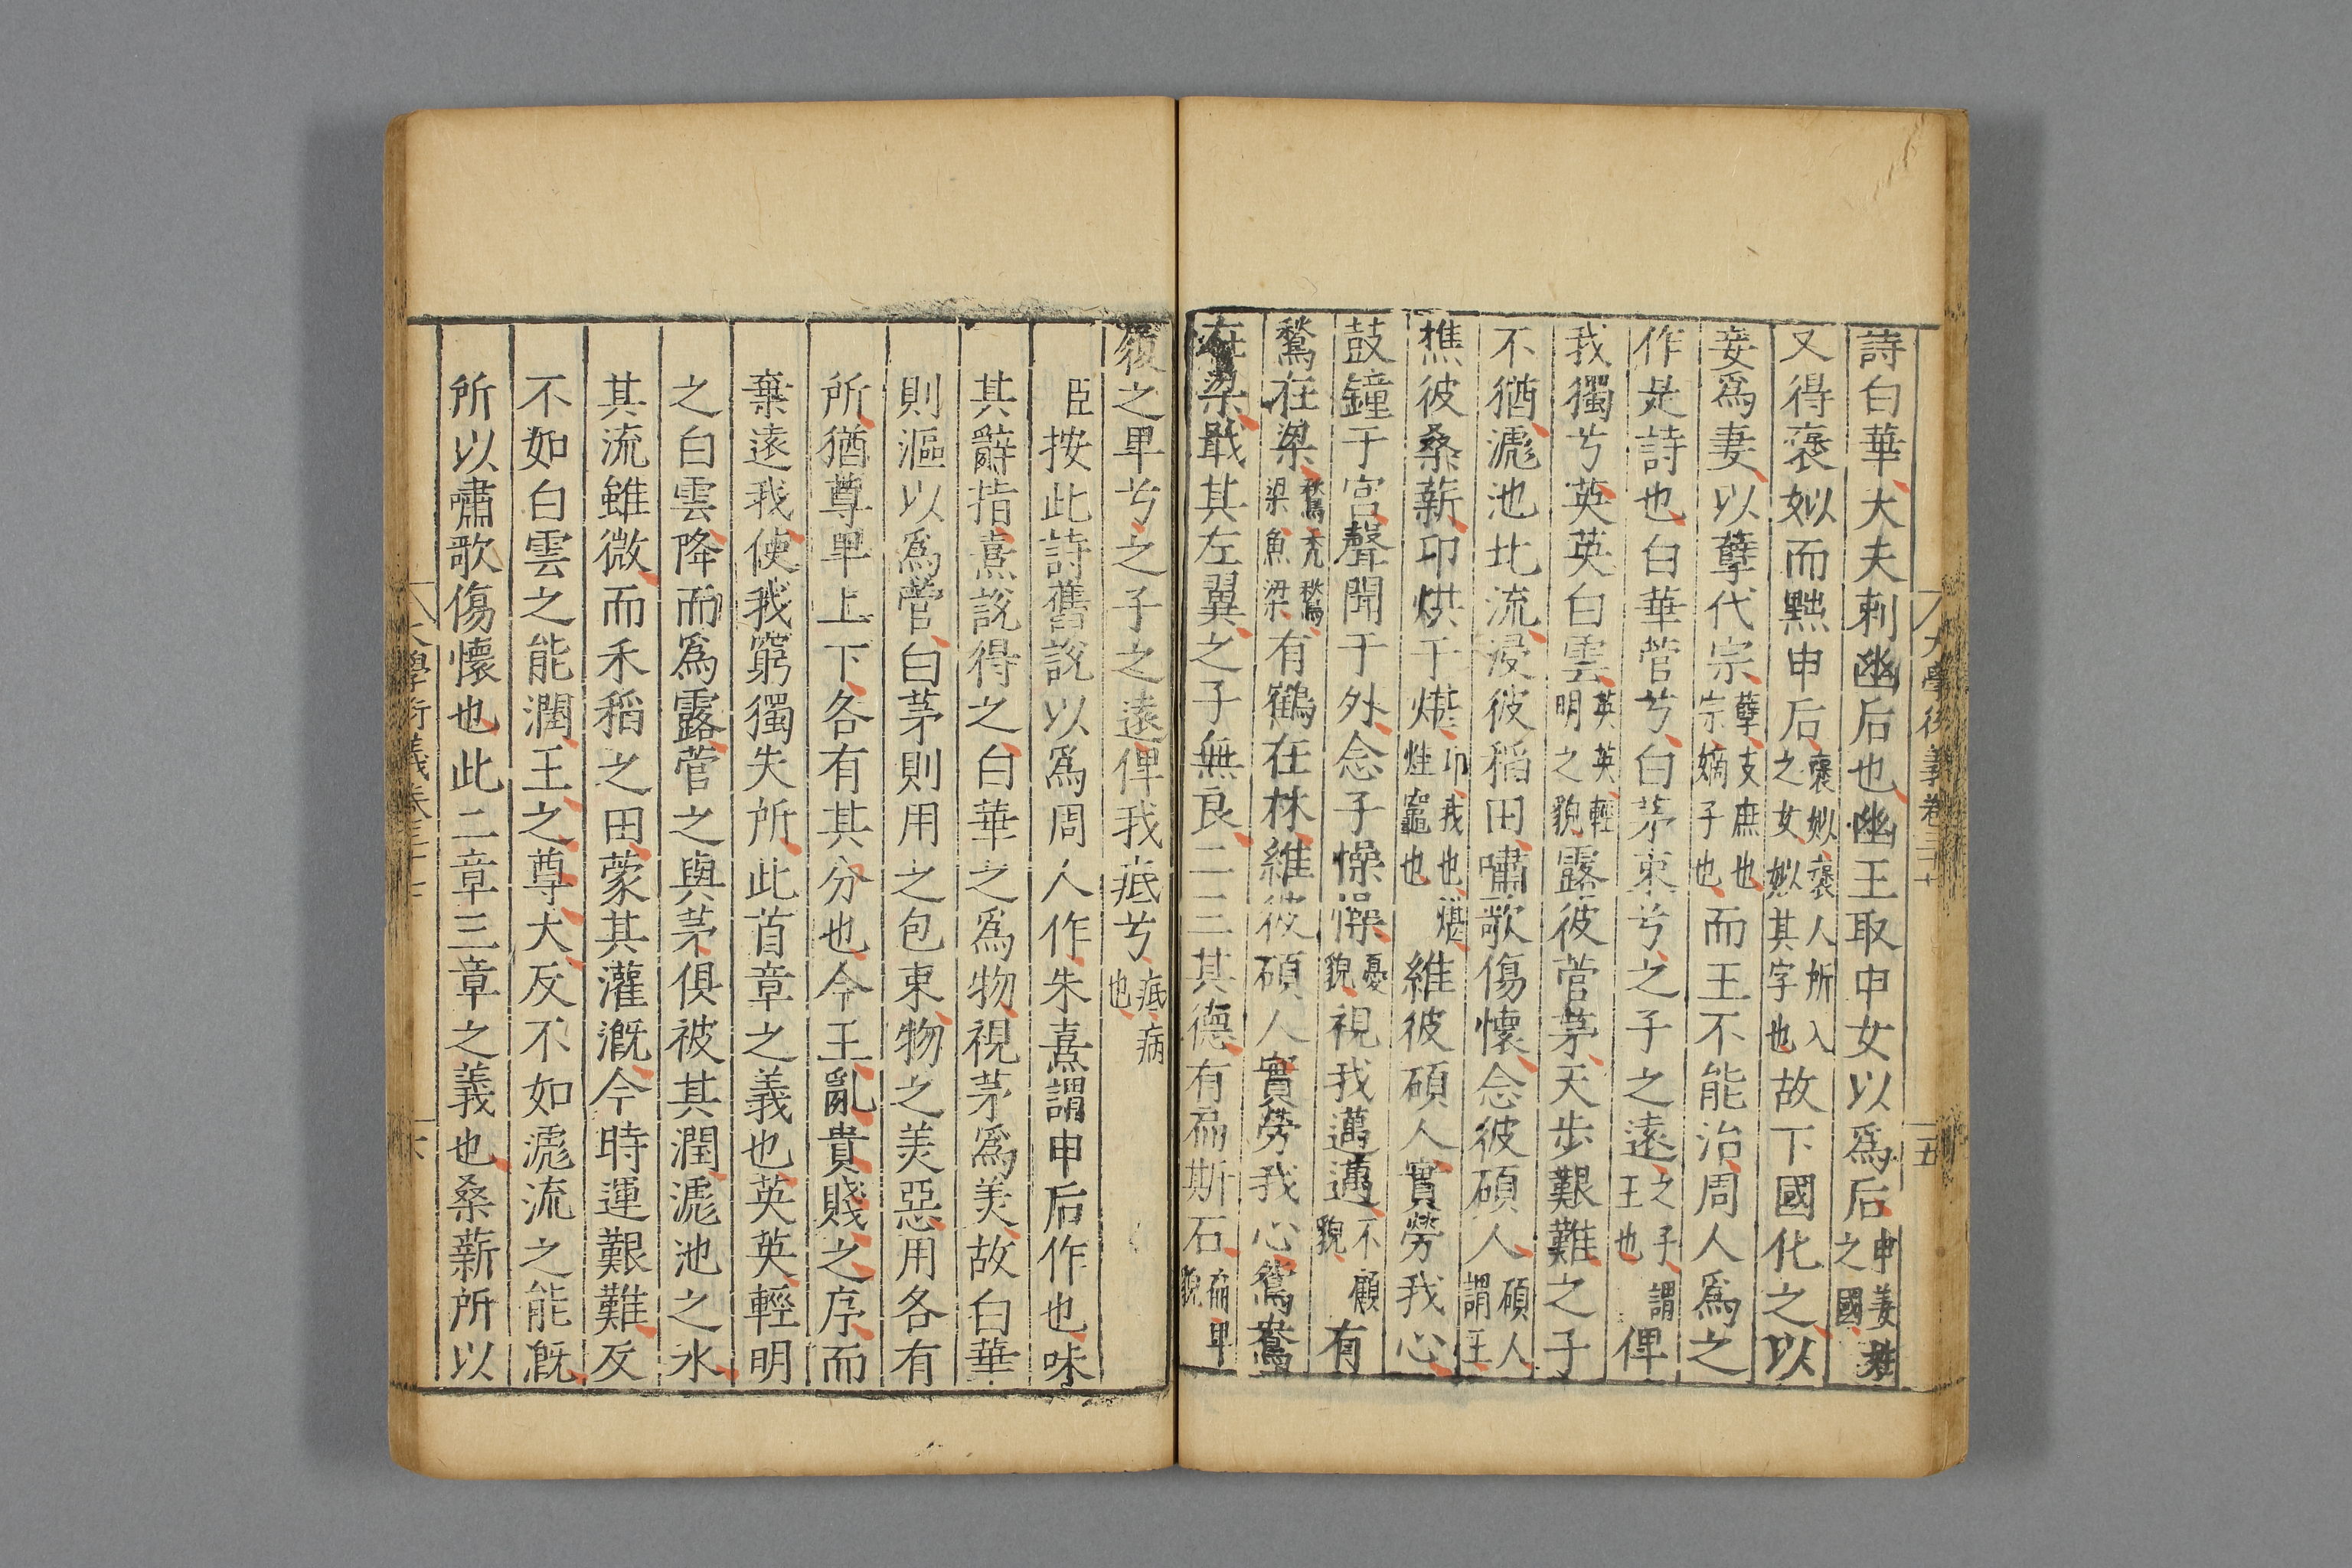 大學衍義卷三十
五
詩白華大夫刺幽后也幽王取申女以爲后申姜姓之國
又得褒姒而黜申后褒姒褒人所入之女姒其字也故下國化之以
妾爲妻以孽代宗孽支庶也宗嫡子也而王不能治周人爲之
作是詩也白華菅兮白茅束兮之子之遠之子謂王也俾
我獨兮英英白雲英英輕明之貌露彼菅茅天步艱難之子
不猶滮池北流浸彼稻田嘯歌傷懷念彼碩人碩人謂王
樵彼桑薪卬烘于煁卬我也煁烓竈也維彼碩人實勞我心
鼓鐘于宮聲聞于外念子懆懆憂貌視我邁邁不顧貌有
鶖在梁鶖禿鶖梁魚梁有鶴在林維彼碩人實勞我心鴛鴦
在梁戢其左翼之子無良二三其德有扁斯石扁卑貌
履之卑兮之子之遠俾我疧兮疧病也
臣按此詩舊說以爲周人作朱熹謂申后作也味
其辭指熹說得之白華之爲物視茅爲美故白華
則漚以爲菅白茅則用之包束物之美惡用各有
所猶尊卑上下各有其分也今王亂貴賤之序而
棄遠我使我窮獨失所此首章之義也英英輕明
之白雲降而爲露菅之與茅俱被其潤滮池之水
其流雖微而禾稻之田蒙其灌溉今時運艱難反
不如白雲之能潤王之尊大反不如滮流之能溉
所以嘯歌傷懷也此二章三章之義也桑薪所以
大學衍義卷三十七
六